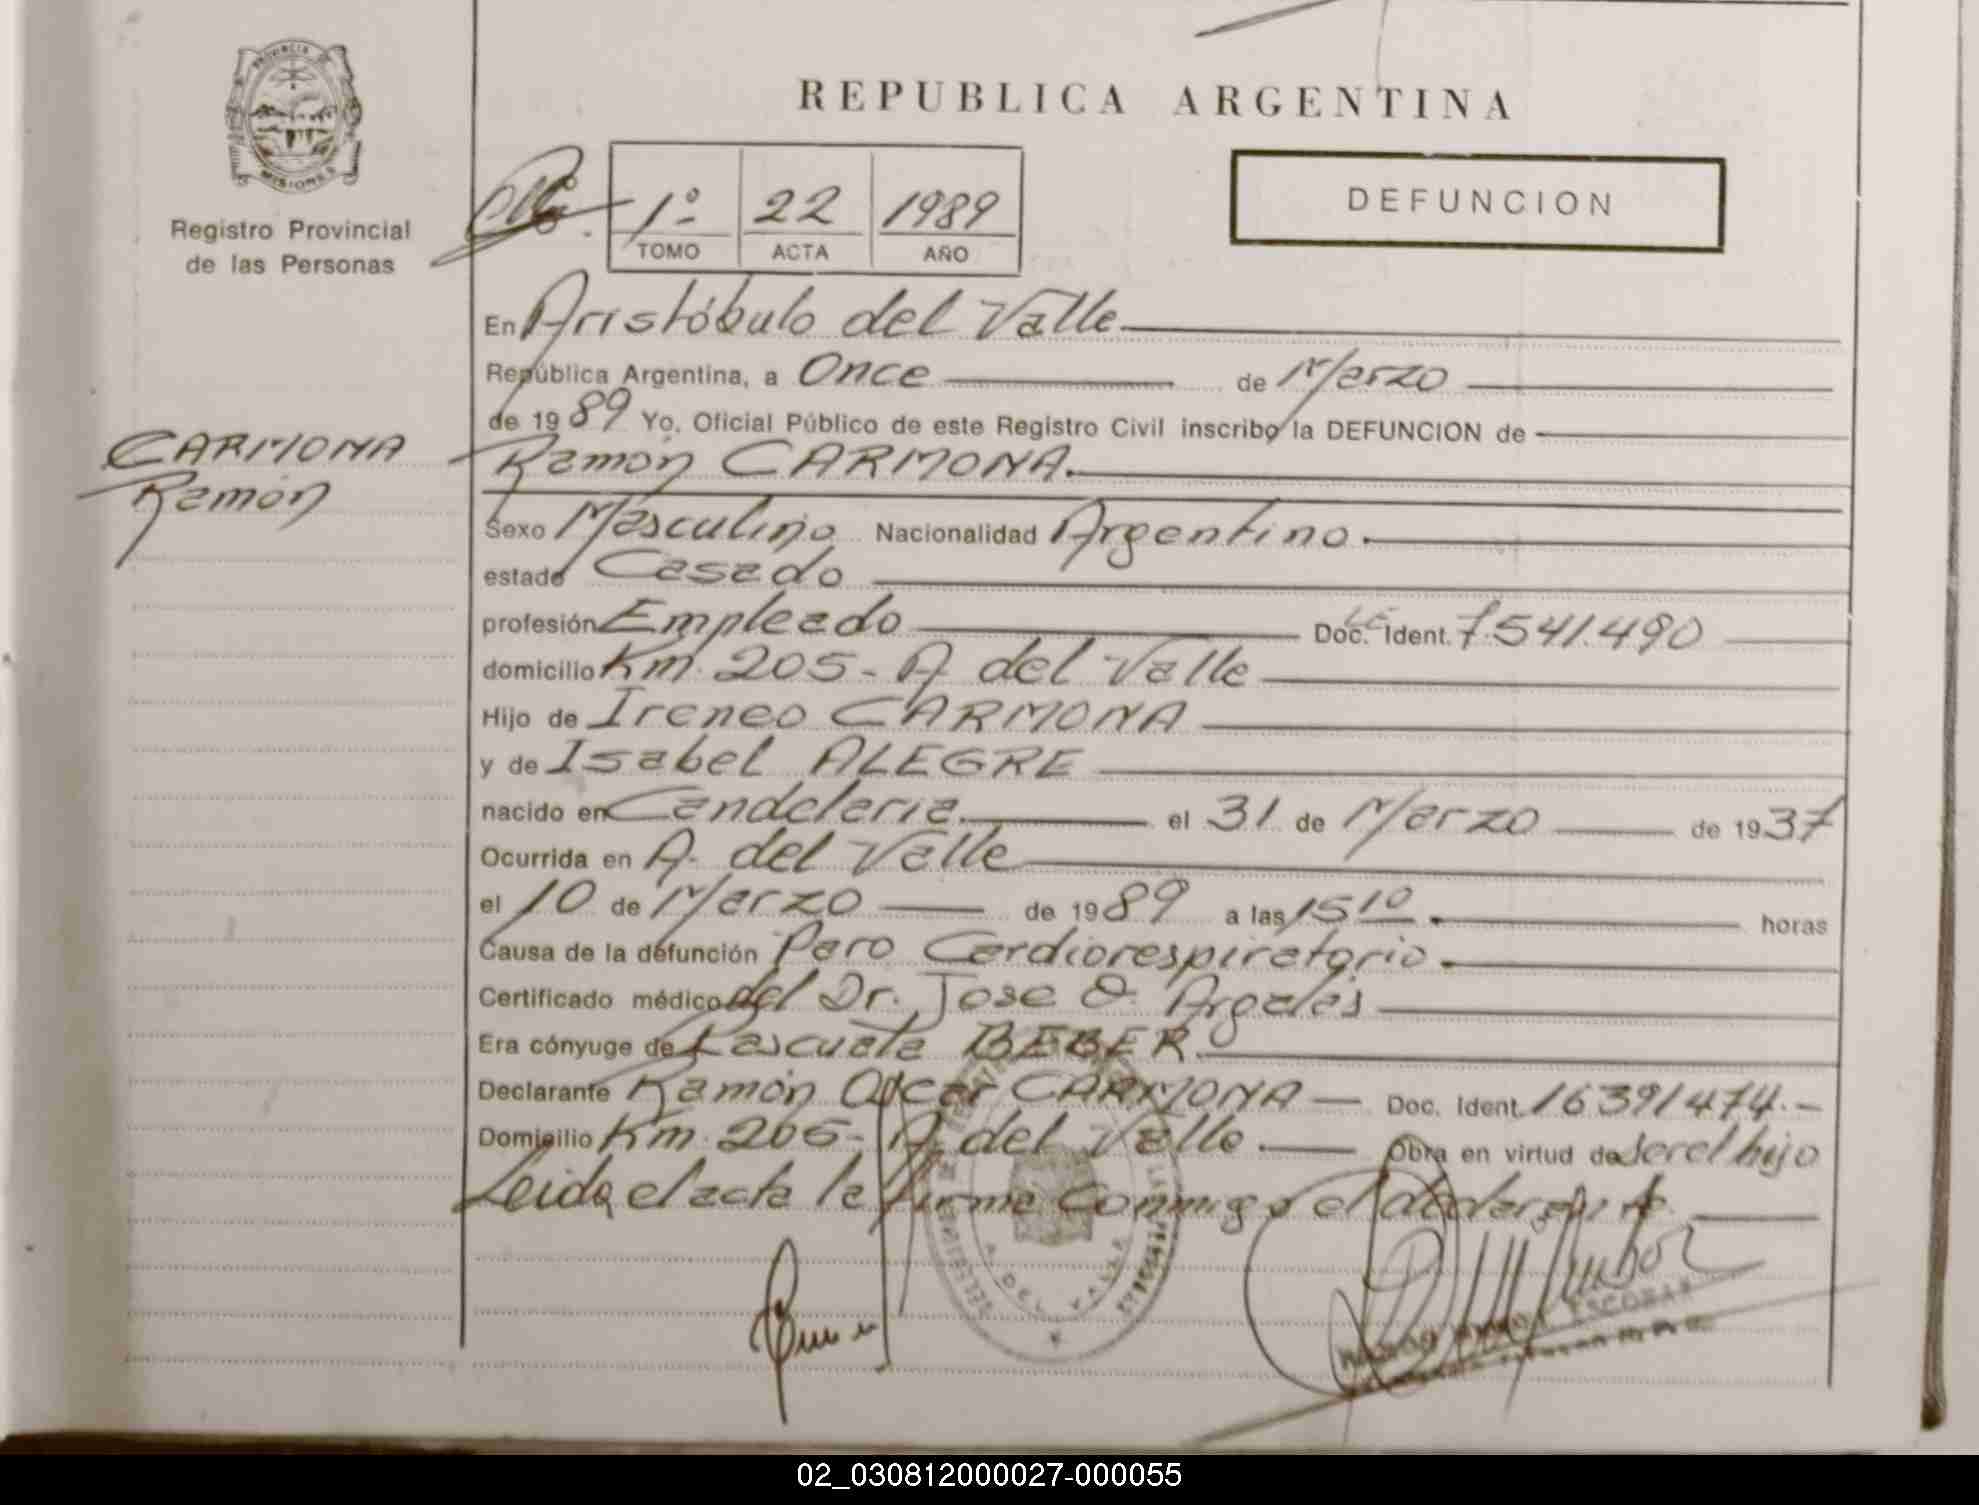 PROVINCIA DE
MISIONES
Registro Provincial
de las Personas
CARMONA
Ramón
REPUBLICA ARGENTINA
1º 22 1989
TOMO ACTA AÑO
DEFUNCION
En Aristóbulo del Valle
República Argentina, a Once de Marzo
de 1989 Yo, Oficial Público de este Registro Civil inscribo la DEFUNCION de
Ramón CARMONA.
Sexo Masculino Nacionalidad Argentino.
estado Casado
profesión Empleado Doc. Ident. LE 7.541.490
domicilio Km. 205 - A del Valle
Hijo de Ireneo CARMONA
y de Isabel ALEGRE
nacido en Candelaria. el 31 de Marzo de 1937
Ocurrida en A. del Valle
el 10 de Marzo de 1989 a las 15 10. horas
Causa de la defunción Paro Cardiorespiratorio.
Certificado médico del Dr. Jose O. Argelés
Era cónyuge de Pascuala BEBER.
Declarante Ramón Oscar CARMONA Doc. Ident. 16391474.-
Domicilio Km. 205 - A. del Valle. Obra en virtud de ser el hijo
Leida el acta la firma conmigo el declarante.
A. DEL VALLE
ESCOBAR
02_030812000027-000055